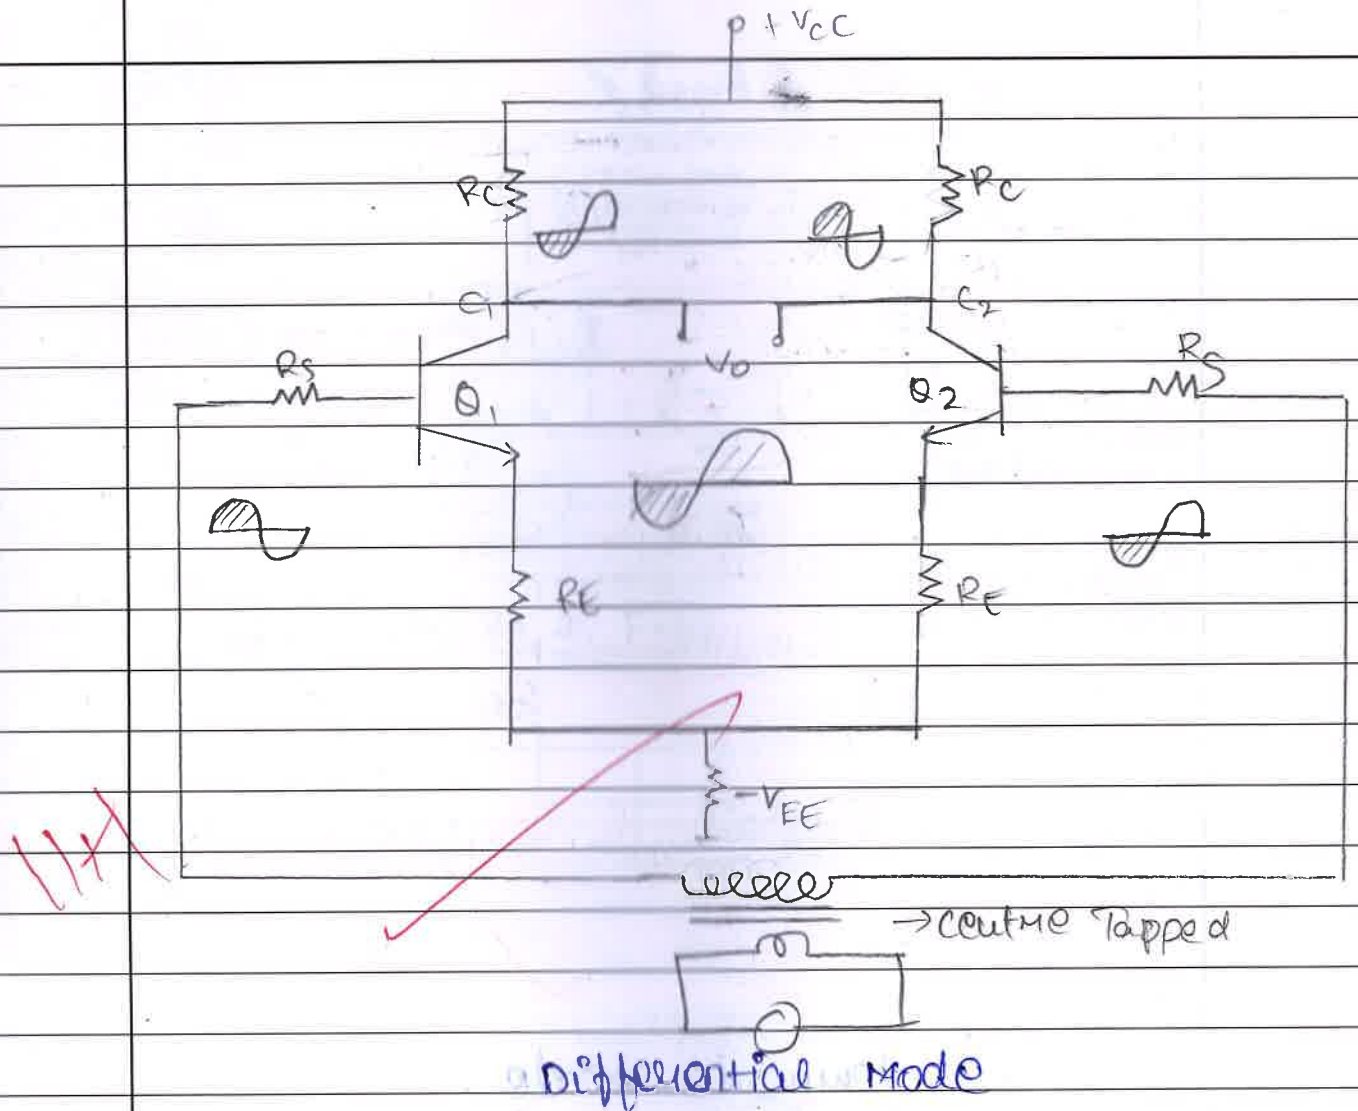 + VCC
RC RC
C1 C2
RS RS
VO
Q1 Q2
RE RE
-VEE
→ Centre Tapped
Differential Mode